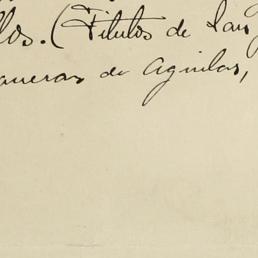 los. (Titulos de San
aneras de Aguilas,